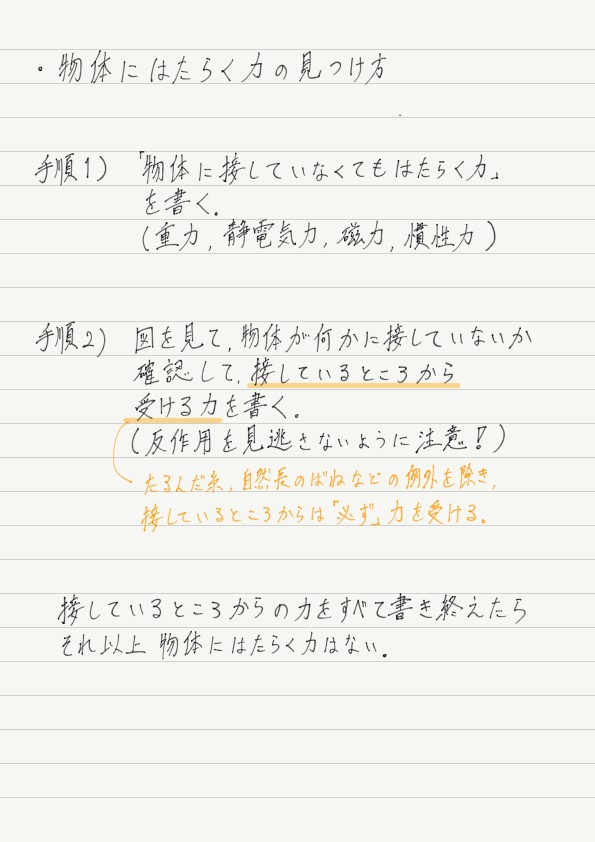 ・物体にはたらく力の見つけ方
手順1) 「物体に接していなくてもはたらく力」
を書く。
(重力, 静電気力, 磁力, 慣性力)
手順2) 図を見て, 物体が何かに接していないか
確認して, 接しているところから
受ける力を書く。
(反作用を見逃さないように注意!)
たるんだ糸, 自然長のばねなどの例外を除き,
接しているところからは「必ず」力を受ける。
接しているところからの力をすべて書き終えたら
それ以上 物体にはたらく力はない。